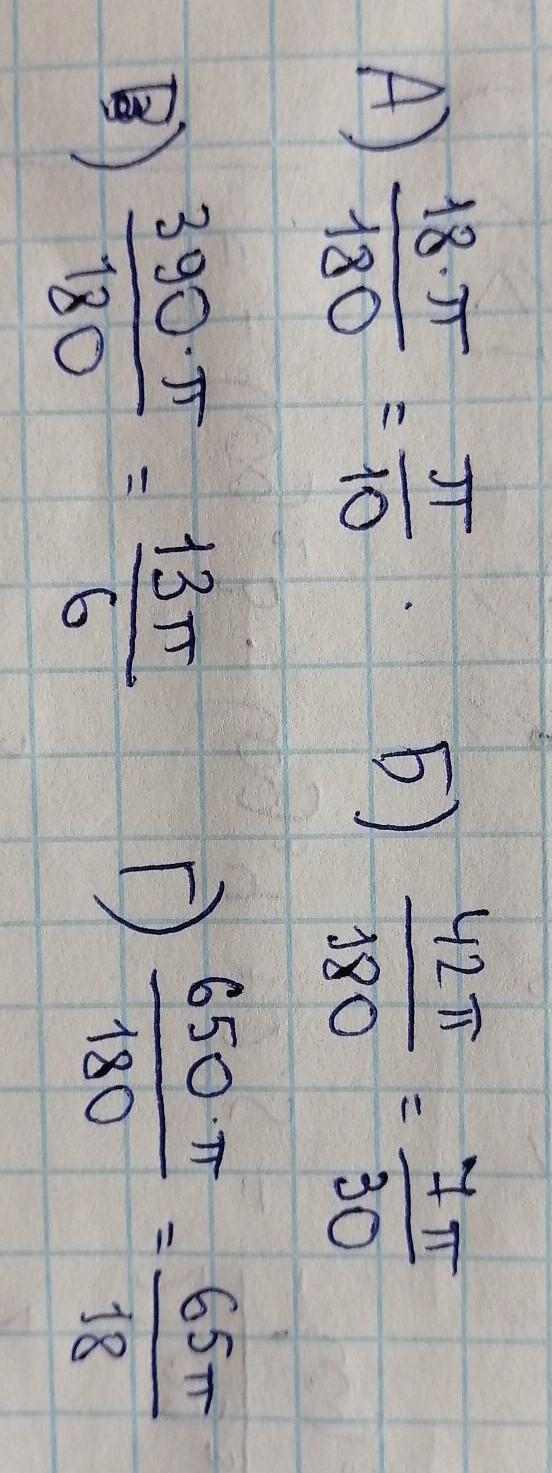 А) 18·π/180 = π/10 . Б) 42π/180 = 7π/30
В) 390·π/180 = 13π/6 Г) 650·π/180 = 65π/18